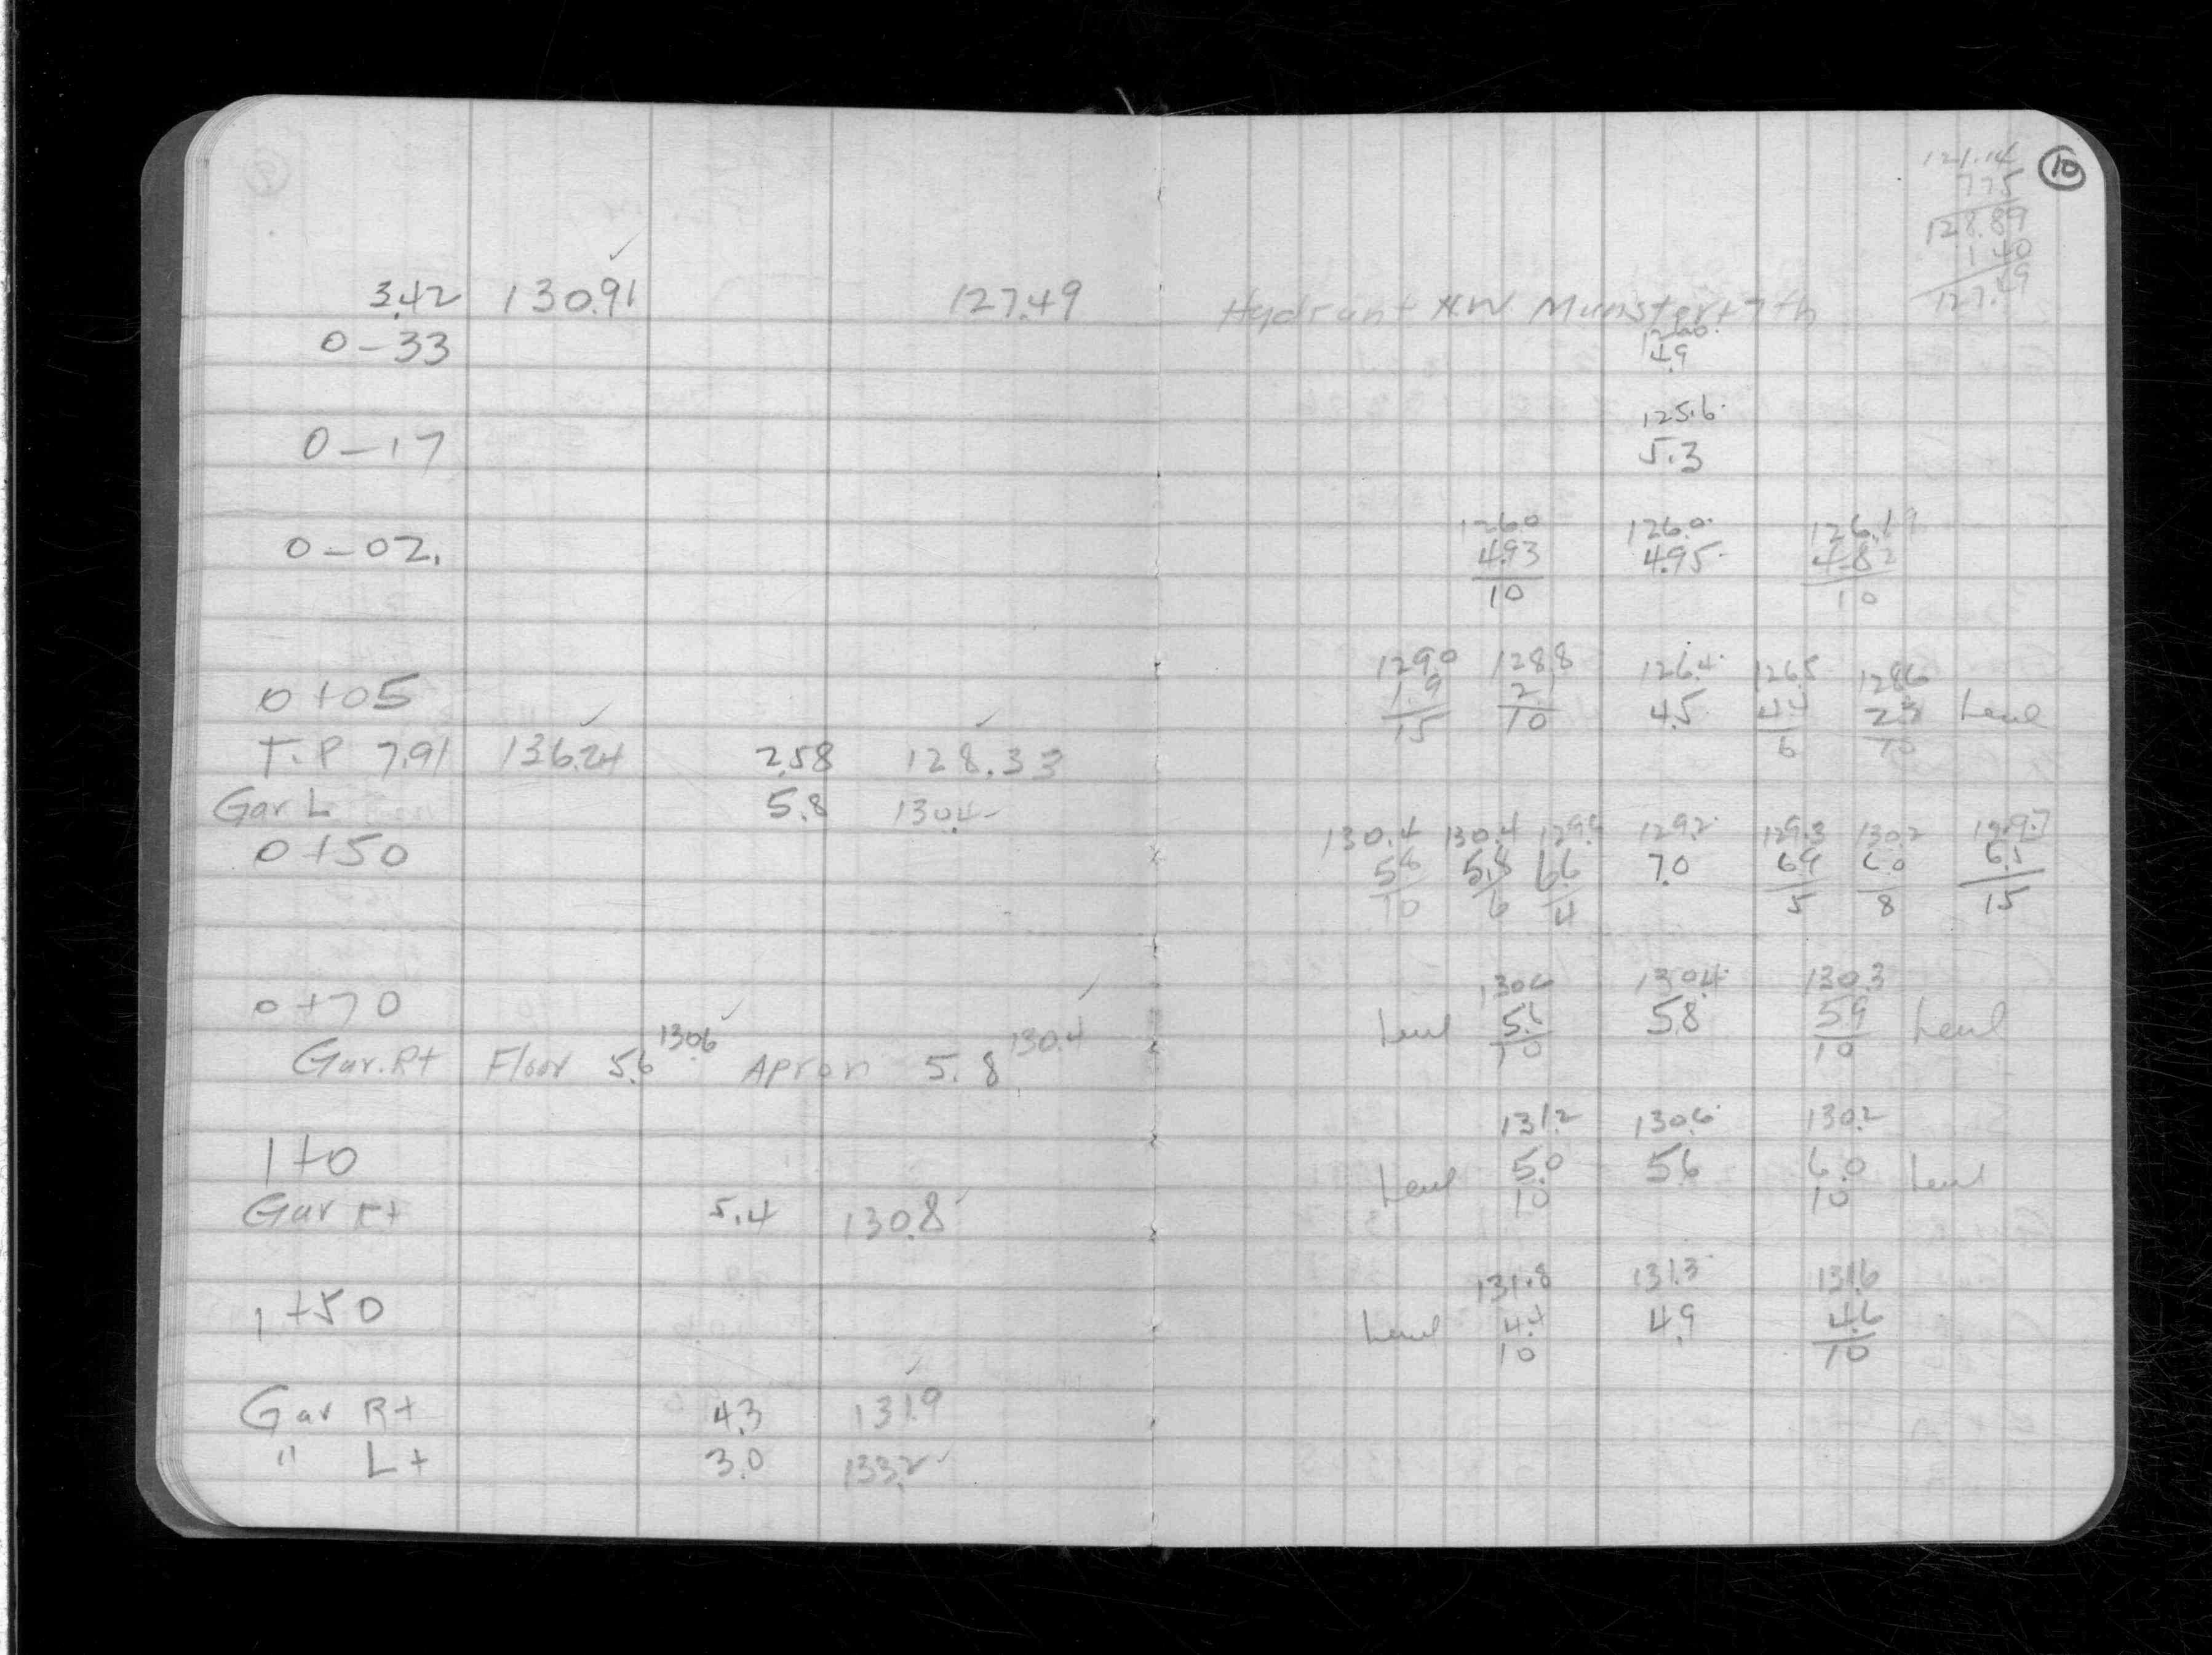 10
121.14
775
128.89
1.40
127.49
3.42 130.91 ✓ 127.49 Hydrant N.W. Munster + 7th
0-33 126.0
4.9
125.6
0-17 5.3
126.0 126.0 126.19
0-02. 4.93 4.95 4.82
10 10
129.0 128.8 126.4 126.5 128.6
0+05 1.9 2.1 4.5 4.4 2.3 Level
15 10 6 10
T.P 7.91 136.24 ✓ 2.58 128.33 ✓
Gar L 5.8 130.4
130.4 130.4 129.6 129.2 129.3 130.2 129.7
0+50 5.8 5.8 6.6 7.0 6.9 6.0 6.5
10 6 4 5 8 15
130.6 130.4 130.3
0+70 Level 5.6 5.8 5.9 Level
10 10
Gar. Rt Floor 5.6 130.6 ✓ Apron 5.8 130.4 ✓
131.2 130.6 130.2
1+0 Level 5.0 5.6 6.0 Level
10 10
Gar Rt 5.4 130.8 ✓
131.8 131.3 131.6
1+50 Level 4.4 4.9 4.6
10 10
Gar Rt 4.3 131.9 ✓
" Lt 3.0 133.2 ✓